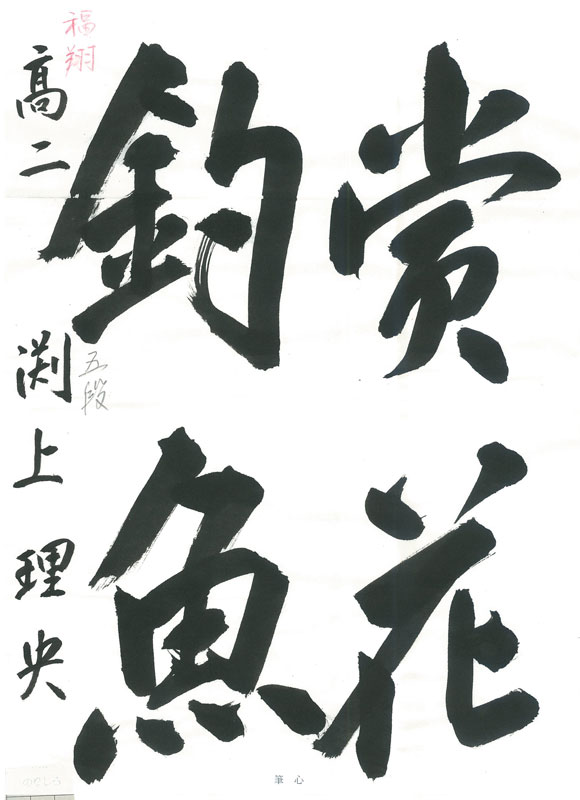 賞花
釣魚
高二 渕上理央
福翔
五段
筆心